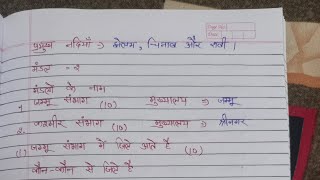 प्रमुख नदियाँ → झेलम, चिनाब और रावी।
मंडल - २
मंडलों के नाम
1. जम्मू संभाग (10) मुख्यालय → जम्मू
2. कश्मीर संभाग (10) मुख्यालय → श्रीनगर
(1) जम्मू संभाग में जिले आते है (10)
कौन-कौन से जिले है